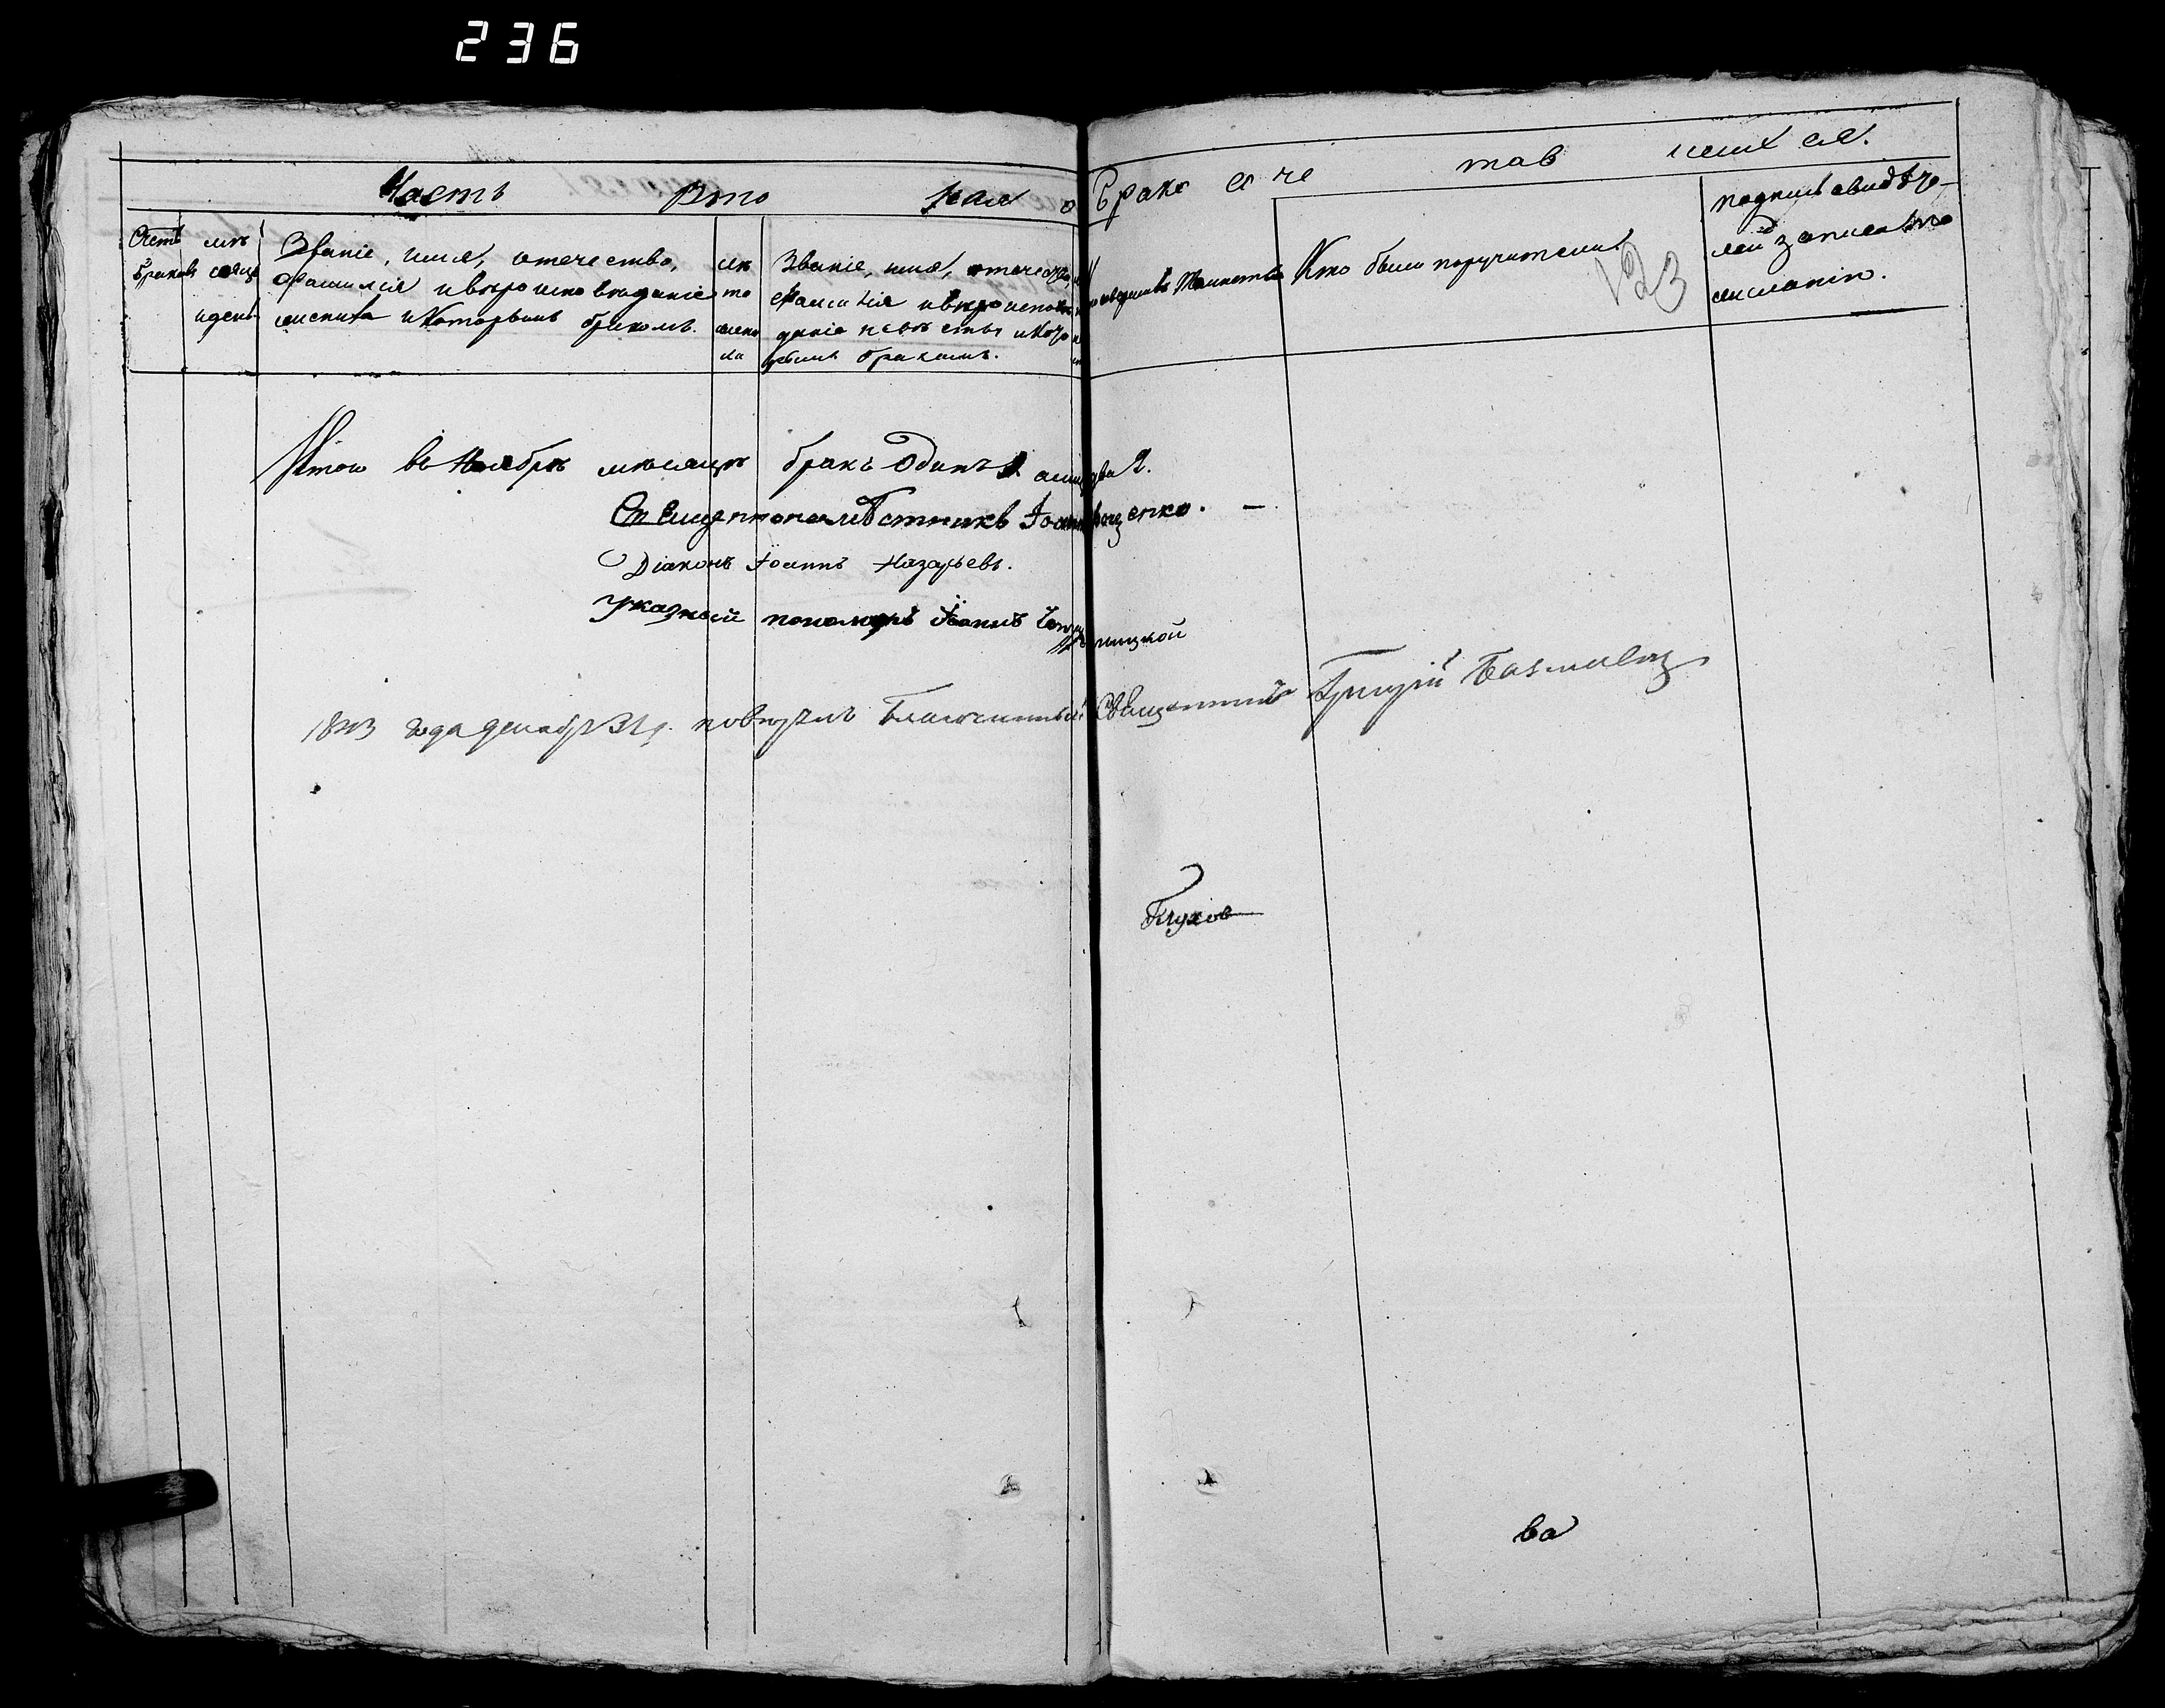 236
Часть Вторая о Бракосочетавшихся.
123
Счетъ браковъ
мѣсяцъ и день
Званіе, имя, отечество,
фамилія и вѣроисповѣданіе
жениха и которымъ бракомъ.
лѣта жениха
Званіе, имя, отечество,
фамилія и вѣроисповѣданіе невѣсты и которымъ бракомъ.
Кто совершалъ Таинство
Кто были поручители
подпись свидѣтелей записи по желанію.
Итого въ Ноябрѣ мѣсяцѣ бракъ Одинъ 1 а лицъ два 2.
Священнонамѣстникъ Іоаннъ
Діаконъ Іоаннъ Назарьевъ.
Указный пономарь Іоаннъ
1843 года декабр 31 д. повѣрялъ Благочинный Священникъ Григорій
Глухов
ва